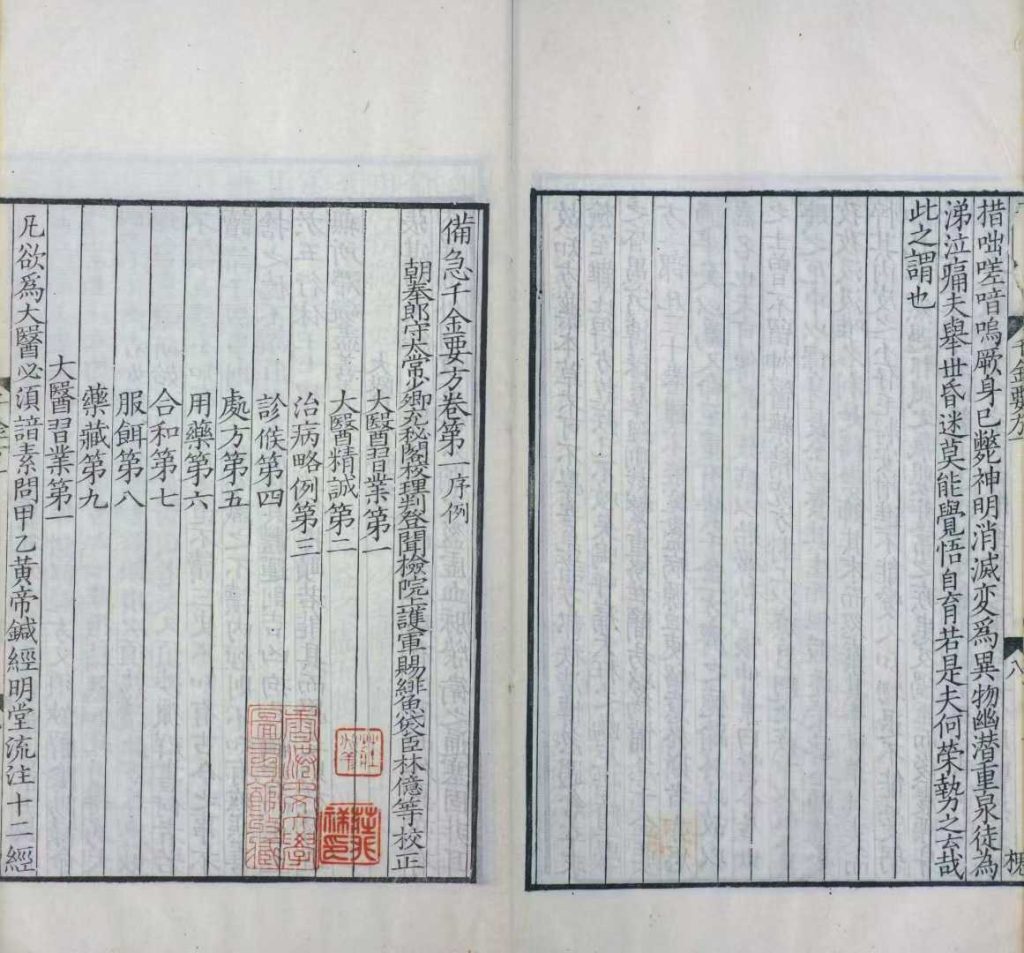 措咄嗟喑嗚厥身已斃神明消滅変爲異物幽潛重泉徒為
涕泣痛夫舉世昏迷莫能覺悟自育若是夫何榮勢之云哉
此之謂也
千金要方
八
備急千金要方卷第一 序例
朝奉郎守太常少卿充秘閣校理判登聞檢院上護軍賜緋魚袋臣林億等校正
大醫習業第一
大醫精誠第二
治病略例第三
診候第四
處方第五
用藥第六
合和第七
服餌第八
藥藏第九
大醫習業第一
凡欲爲大醫必須諳素問甲乙黃帝鍼經明堂流注十二經
香港中文大學
圖書館所藏